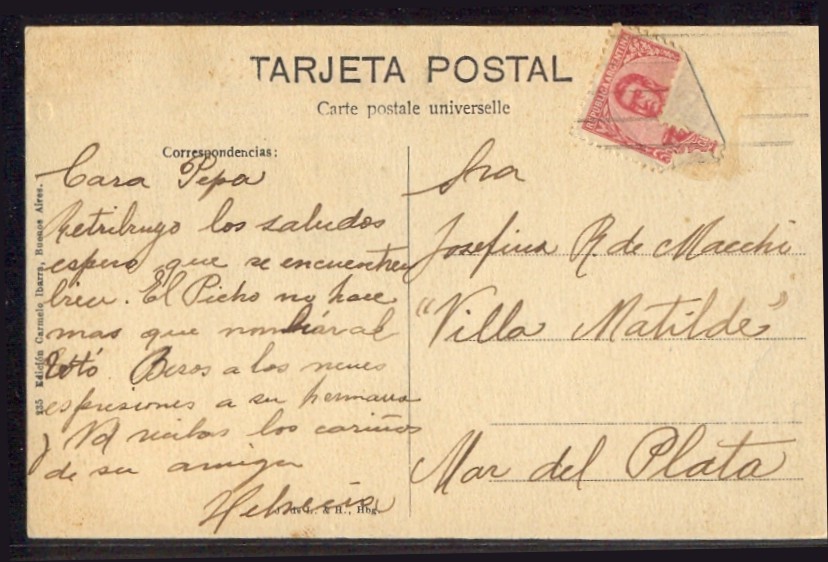 TARJETA POSTAL
Carte postale universelle
REPUBLICA ARGENTINA
Correspondencias:
Cara Pepa
Retribuyo los saludos
espero que se encuentren
bien. El Picho no hace
mas que nombrar al
Beses a los nenes
espresiones a su hermana
y Vd reciba los cariños
de su amiga
Sra
Josefina R. de Macchi
"Villa Matilde"
Mar del Plata
235 Edición Carmelo Ibarra, Buenos Aires.
& H., Hbg.